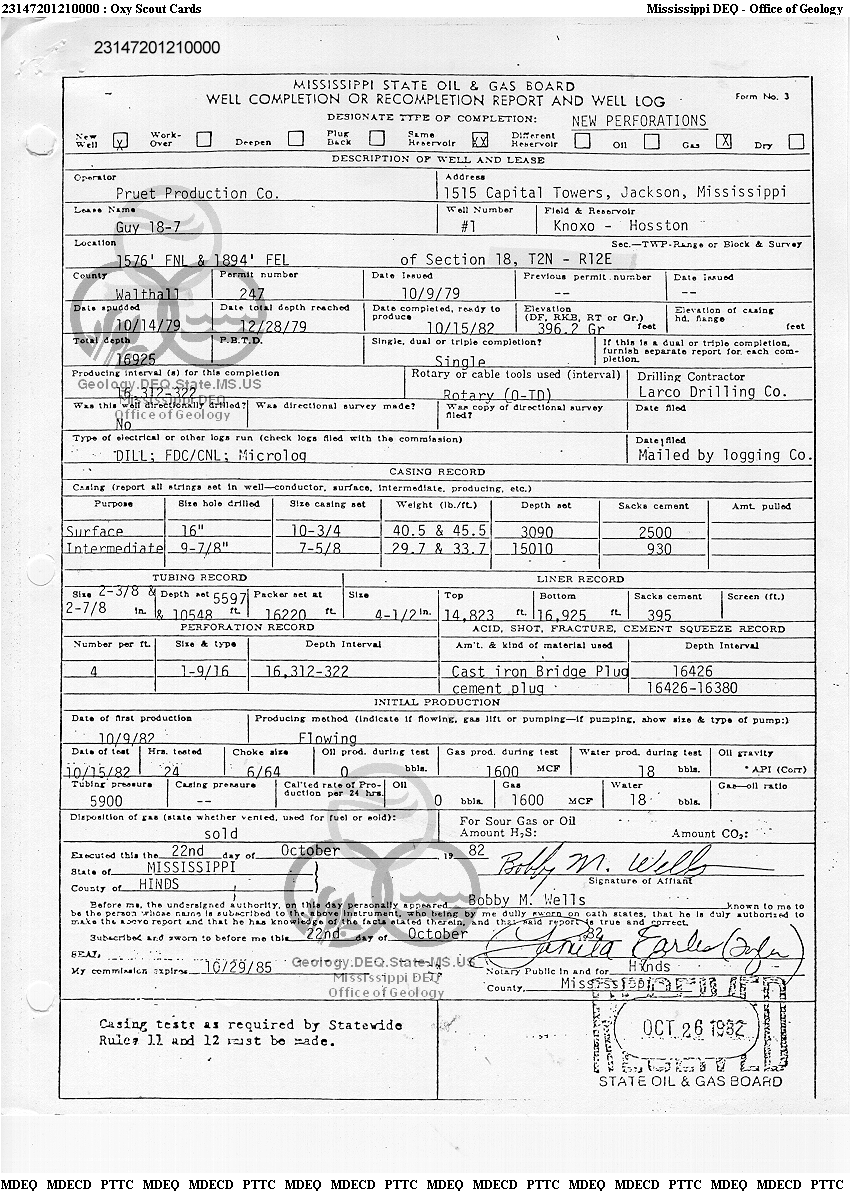 23147201210000 : Oxy Scout Cards Mississippi DEQ - Office of Geology
23147201210000
MISSISSIPPI STATE OIL & GAS BOARD
WELL COMPLETION OR RECOMPLETION REPORT AND WELL LOG Form No. 3
DESIGNATE TYPE OF COMPLETION: NEW PERFORATIONS
New Well X Work-Over Deepen Plug Back Same Reservoir XX Different Reservoir Oil Gas X Dry
DESCRIPTION OF WELL AND LEASE
Operator Address
Pruet Production Co. 1515 Capital Towers, Jackson, Mississippi
Lease Name Well Number Field & Reservoir
Guy 18-7 #1 Knoxo - Hosston
Location Sec.—TWP-Range or Block & Survey
1576' FNL & 1894' FEL of Section 18, T2N - R12E
County Permit number Date Issued Previous permit number Date Issued
Walthall 247 10/9/79 -- --
Date spudded Date total depth reached Date completed, ready to produce Elevation (DF, RKB, RT or Gr.) Elevation of casing hd. flange
10/14/79 12/28/79 10/15/82 396.2 Gr feet feet
Total depth P.B.T.D. Single, dual or triple completion? If this is a dual or triple completion, furnish separate report for each completion.
16925 Single
Producing interval (s) for this completion Rotary or cable tools used (interval) Drilling Contractor
16,312-322 Rotary (O-TD) Larco Drilling Co.
Geology.DEQ.State.MS.US
Mississippi DEQ
Office of Geology
Was this well directionally drilled? Was directional survey made? Was copy of directional survey filed? Date filed
No
Type of electrical or other logs run (check logs filed with the commission) Date filed
DILL; FDC/CNL; Microlog Mailed by logging Co.
CASING RECORD
Casing (report all strings set in well—conductor, surface, intermediate, producing, etc.)
Purpose Size hole drilled Size casing set Weight (lb./ft.) Depth set Sacks cement Amt. pulled
Surface 16" 10-3/4 40.5 & 45.5 3090 2500
Intermediate 9-7/8" 7-5/8 29.7 & 33.7 15010 930
TUBING RECORD LINER RECORD
Size 2-3/8 & Depth set 5597 Packer set at Size Top Bottom Sacks cement Screen (ft.)
2-7/8 in. & 10548 ft. 16220 ft. 4-1/2 in. 14,823 ft. 16,925 ft. 395
PERFORATION RECORD ACID, SHOT, FRACTURE, CEMENT SQUEEZE RECORD
Number per ft. Size & type Depth Interval Am't. & kind of material used Depth Interval
4 1-9/16 16,312-322 Cast iron Bridge Plug 16426
cement plug 16426-16380
INITIAL PRODUCTION
Date of first production Producing method (indicate if flowing, gas lift or pumping—if pumping, show size & type of pump:)
10/9/82 Flowing
Date of test Hrs. tested Choke size Oil prod. during test Gas prod. during test Water prod. during test Oil gravity
10/15/82 24 6/64 0 bbls. 1600 MCF 18 bbls. ° API (Corr)
Tubing pressure Casing pressure Cal'ted rate of Production per 24 hrs. Oil Gas Water Gas—oil ratio
5900 -- 0 bbls. 1600 MCF 18 bbls.
Disposition of gas (state whether vented, used for fuel or sold): For Sour Gas or Oil
sold Amount H2S: Amount CO2:
Executed this the 22nd day of October 19 82 Bobby M. Wells
State of MISSISSIPPI Signature of Affiant
County of HINDS
Before me, the undersigned authority, on this day personally appeared Bobby M. Wells known to me to
be the person whose name is subscribed to the above instrument, who being by me dully sworn on oath states, that he is duly authorized to
make the above report and that he has knowledge of the facts stated therein, and that said report is true and correct.
Subscribed and sworn to before me this 22nd day of October 82
SEAL
My commission expires 10/29/85 Notary Public in and for Hinds
County, Mississippi
Geology.DEQ.State.MS.US
Mississippi DEQ
Office of Geology
Casing tests as required by Statewide
Rules 11 and 12 must be made.
RECEIVED
OCT 26 1982
STATE OIL & GAS BOARD
MDEQ MDECD PTTC MDEQ MDECD PTTC MDEQ MDECD PTTC MDEQ MDECD PTTC MDEQ MDECD PTTC MDEQ MDECD PTTC